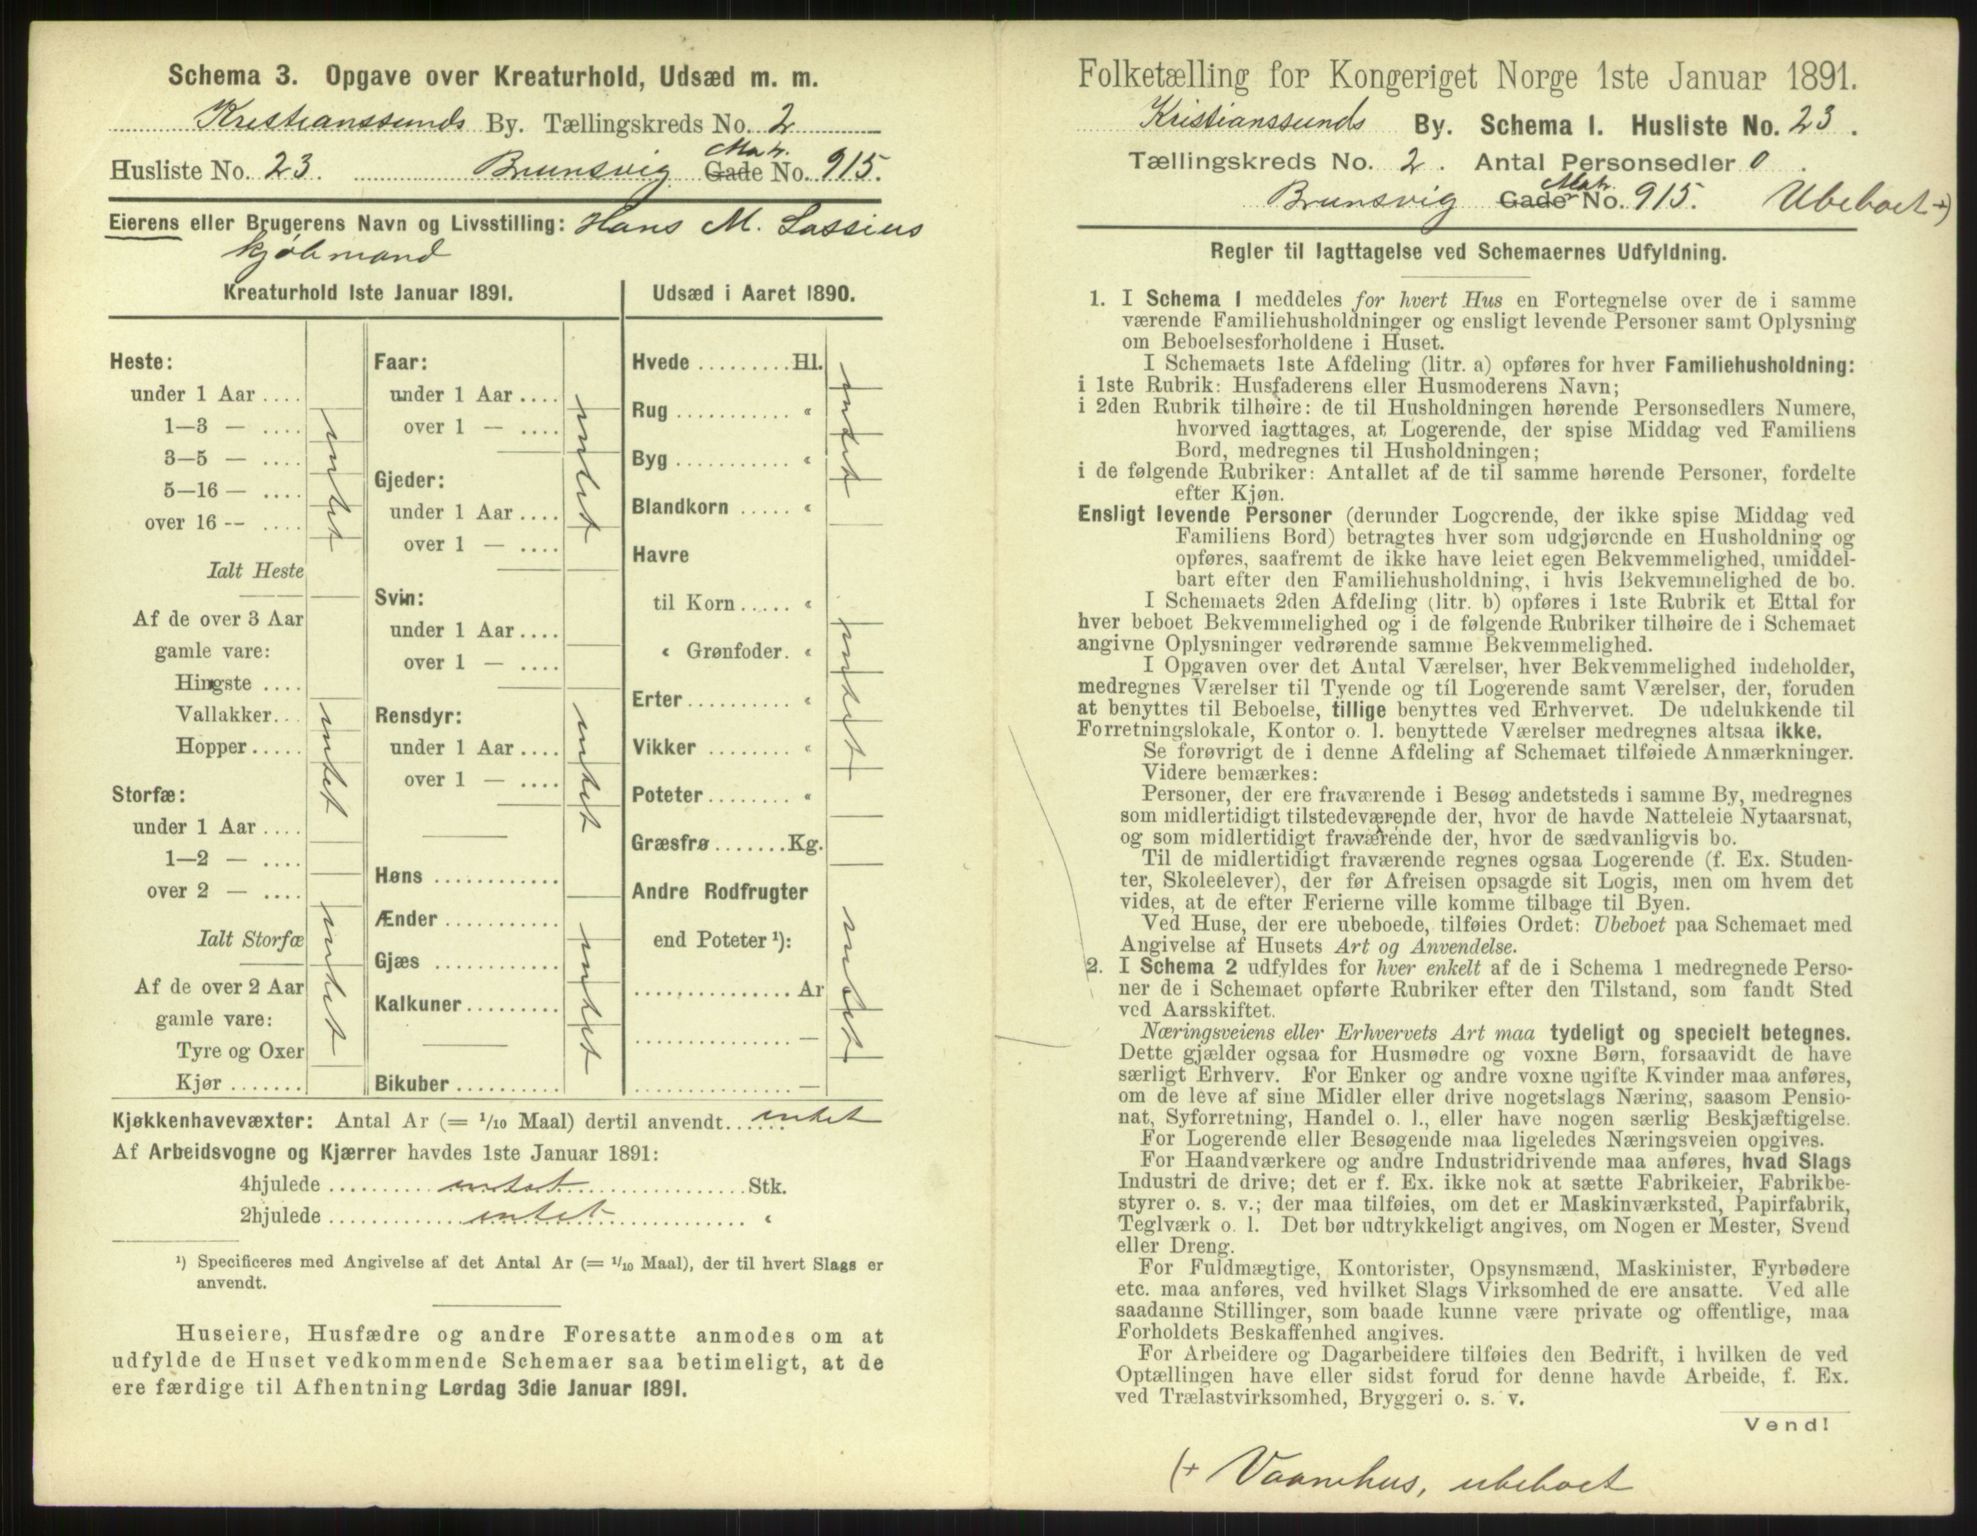 Schema 3. Opgave over Kreaturhold, Udsæd m. m.
Kristianssunds By. Tællingskreds No. 2
Husliste No. 23. Brunsvig Gade Matr. No. 915.
Eierens eller Brugerens Navn og Livsstilling: Hans M. Lassius
kjøbmand
Kreaturhold 1ste Januar 1891.
Heste:
under 1 Aar ....
1—3 — ....
3—5 — ....
5—16 — ....
over 16 -- ....
intet
Ialt Heste
Af de over 3 Aar
gamle vare:
Hingste ....
Vallakker...
Hopper.....
intet
Storfæ:
under 1 Aar ....
1—2 — ....
over 2 — ....
Ialt Storfæ
intet
Af de over 2 Aar
gamle vare:
Tyre og Oxer
Kjør .......
Faar:
under 1 Aar ....
over 1 — ....
intet
Gjeder:
under 1 Aar ....
over 1 — ....
Svin:
under 1 Aar ....
over 1 — ....
Rensdyr:
under 1 Aar ....
over 1 — ....
intet
Høns ............
Ænder ...........
Gjæs ............
Kalkuner.........
intet
Bikuber ..........
Udsæd i Aaret 1890.
Hvede .........Hl.
Rug ........... "
Byg ........... "
intet
Blandkorn ..... "
Havre
til Korn ..... "
" Grønfoder. "
Erter.......... "
Vikker ........ "
intet
Poteter........ "
Græsfrø .......Kg.
Andre Rodfrugter
end Poteter ¹):
............... Ar
............... —
............... —
intet
Kjøkkenhavevæxter: Antal Ar (= 1/10 Maal) dertil anvendt...... intet
Af Arbeidsvogne og Kjærrer havdes 1ste Januar 1891:
4hjulede .......... intet .......... Stk.
2hjulede .......... intet .......... "
¹) Specificeres med Angivelse af det Antal Ar (= 1/10 Maal), der til hvert Slags er
anvendt.
Huseiere, Husfædre og andre Foresatte anmodes om at
udfylde de Huset vedkommende Schemaer saa betimeligt, at de
ere færdige til Afhentning Lørdag 3die Januar 1891.
Folketælling for Kongeriget Norge 1ste Januar 1891.
Kristianssunds By. Schema I. Husliste No. 23.
Tællingskreds No. 2. Antal Personsedler 0.
Brunsvig Gade Matr. No. 915. Ubeboet +)
Regler til Iagttagelse ved Schemaernes Udfyldning.
1. I Schema 1 meddeles for hvert Hus en Fortegnelse over de i samme
værende Familiehusholdninger og ensligt levende Personer samt Oplysning
om Beboelsesforholdene i Huset.
I Schemaets 1ste Afdeling (litr. a) opføres for hver Familiehusholdning:
i 1ste Rubrik: Husfaderens eller Husmoderens Navn;
i 2den Rubrik tilhøire: de til Husholdningen hørende Personsedlers Numere,
hvorved iagttages, at Logerende, der spise Middag ved Familiens
Bord, medregnes til Husholdningen;
i de følgende Rubriker: Antallet af de til samme hørende Personer, fordelte
efter Kjøn.
Ensligt levende Personer (derunder Logerende, der ikke spise Middag ved
Familiens Bord) betragtes hver som udgjørende en Husholdning og
opføres, saafremt de ikke have leiet egen Bekvemmelighed, umiddel-
bart efter den Familiehusholdning, i hvis Bekvemmelighed de bo.
I Schemaets 2den Afdeling (litr. b) opføres i 1ste Rubrik et Ettal for
hver beboet Bekvemmelighed og i de følgende Rubriker tilhøire de i Schemaet
angivne Oplysninger vedrørende samme Bekvemmelighed.
I Opgaven over det Antal Værelser, hver Bekvemmelighed indeholder,
medregnes Værelser til Tyende og til Logerende samt Værelser, der, foruden
at benyttes til Beboelse, tillige benyttes ved Erhvervet. De udelukkende til
Forretningslokale, Kontor o. l. benyttede Værelser medregnes altsaa ikke.
Se forøvrigt de i denne Afdeling af Schemaet tilføiede Anmærkninger.
Videre bemærkes:
Personer, der ere fraværende i Besøg andetsteds i samme By, medregnes
som midlertidigt tilstedeværende der, hvor de havde Natteleie Nytaarsnat,
og som midlertidigt fraværende der, hvor de sædvanligvis bo.
Til de midlertidigt fraværende regnes ogsaa Logerende (f. Ex. Studen-
ter, Skoleelever), der før Afreisen opsagde sit Logis, men om hvem det
vides, at de efter Ferierne ville komme tilbage til Byen.
Ved Huse, der ere ubeboede, tilføies Ordet: Ubeboet paa Schemaet med
Angivelse af Husets Art og Anvendelse.
2. I Schema 2 udfyldes for hver enkelt af de i Schema 1 medregnede Perso-
ner de i Schemaet opførte Rubriker efter den Tilstand, som fandt Sted
ved Aarsskiftet.
Næringsveiens eller Erhvervets Art maa tydeligt og specielt betegnes.
Dette gjælder ogsaa for Husmødre og voxne Børn, forsaavidt de have
særligt Erhverv. For Enker og andre voxne ugifte Kvinder maa anføres,
om de leve af sine Midler eller drive nogetslags Næring, saasom Pensio-
nat, Syforretning, Handel o. l., eller have nogen særlig Beskjæftigelse.
For Logerende eller Besøgende maa ligeledes Næringsveien opgives.
For Haandværkere og andre Industridrivende maa anføres, hvad Slags
Industri de drive; det er f. Ex. ikke nok at sætte Fabrikeier, Fabrikbe-
styrer o. s. v.; der maa tilføies, om det er Maskinværksted, Papirfabrik,
Teglværk o. l. Det bør udtrykkeligt angives, om Nogen er Mester, Svend
eller Dreng.
For Fuldmægtige, Kontorister, Opsynsmænd, Maskinister, Fyrbødere
etc. maa anføres, ved hvilket Slags Virksomhed de ere ansatte. Ved alle
saadanne Stillinger, som baade kunne være private og offentlige, maa
Forholdets Beskaffenhed angives.
For Arbeidere og Dagarbeidere tilføies den Bedrift, i hvilken de ved
Optællingen have eller sidst forud for denne havde Arbeide, f. Ex.
ved Trælastvirksomhed, Bryggeri o. s. v.
Vend!
(+ Vaanehus, ubeboet